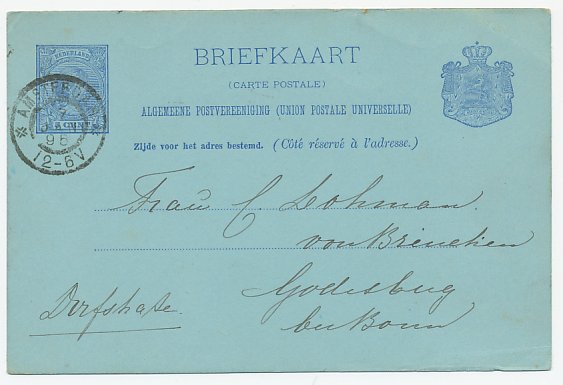 NEDERLAND
5 CENT
AMSTERDAM
95
12-6V
BRIEFKAART
(CARTE POSTALE)
ALGEMEENE POSTVEREENIGING (UNION POSTALE UNIVERSELLE)
Zijde voor het adres bestemd. (Côté réservé à l'adresse.)
Frau C. Lohman.
von Brincken
Godesberg
bei Bonn
Dorfstrasse.